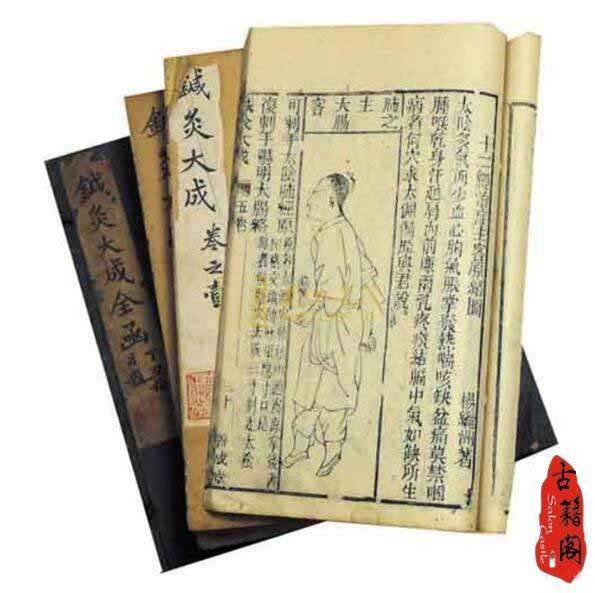 十二經治症主客原絡圖
楊繼洲著
太陰多氣而少血心胸氣脹掌發熱喘咳缺盆痛莫禁咽
腫喉乾身汗越肩內前廉兩乳疼痰結膈中氣如缺所生
病者何穴求太淵偏歷與君說
肺之主大腸客
可刺手太陰肺經原
復刺手陽明大腸絡
鍼灸大成
五卷
二十
善成堂
鍼灸大成
卷之壹
鍼
鍼灸大成全函
古籍阁
Salon Castle